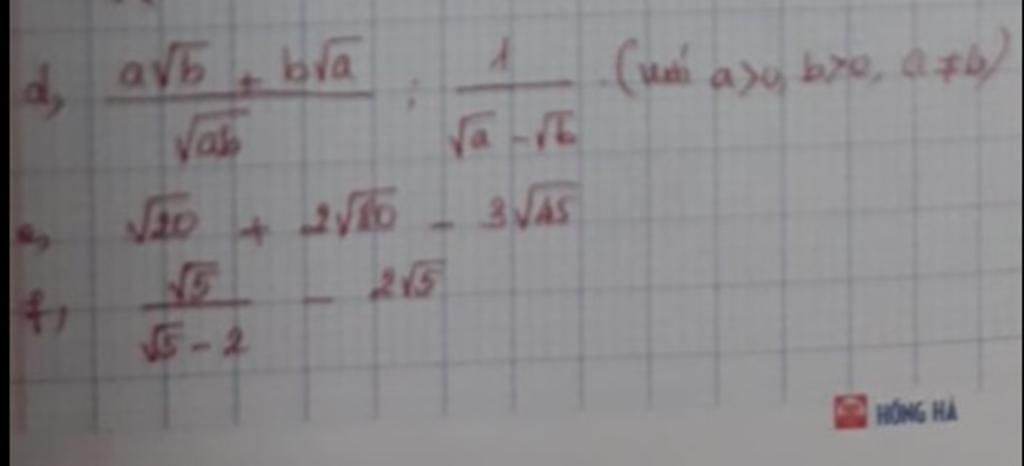 d, \frac{a\sqrt{b} + b\sqrt{a}}{\sqrt{ab}} : \frac{1}{\sqrt{a} - \sqrt{b}} (với a>0, b>0, a≠b)
e, \sqrt{20} + 2\sqrt{80} - 3\sqrt{45}
f, \frac{\sqrt{5}}{\sqrt{5} - 2} - 2\sqrt{5}
HỒNG HÀ